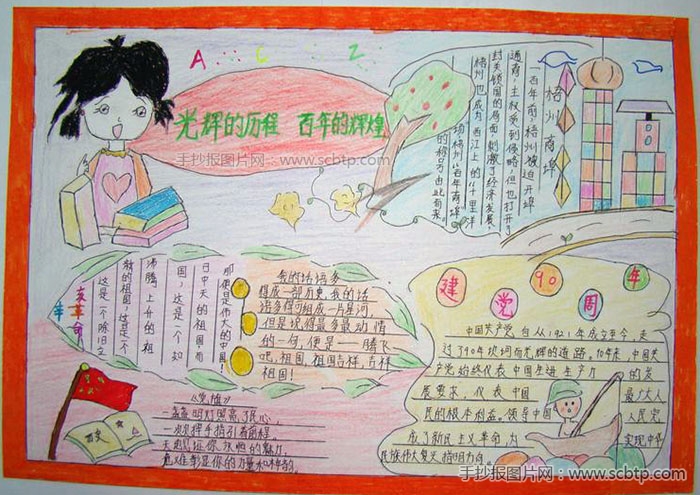 A C Z
光辉的历程 百年的辉煌
手抄报图片网：www.scbtp.com
梧州商埠
一百年前梧州被迫开埠
通商，主权受到侵略，但也打开了
封关锁国的局面，刺激了经济发展，
梧州也成为西江上的"十里洋
场"梧州"百年商埠
的称号由此而来。
辛亥革命
这是一个除旧立
新的祖国，这是一个
沸腾上升的祖
国，这是一个如
日中天的祖国，而
那便是伟大的中国！
我的话语多
组成一部历史，我的话
语多得可组成一片星河，
但是坎得最多最动情
的一句，便是——腾飞
吧，祖国，祖国吉祥，吉祥
祖国！
建党90周年
中国共产党，自从1921年成立至今，走
过了90年坎坷而光辉的道路，90年来，中国共
产党始终代表中国先进生产力的发
展要求，代表中国最广大人
民的根本利益。领导中国人民完
成了新民主义革命，为实现中华
民族伟大复兴指明方向。
《党旗》
一盏盏明灯照亮了民心
一次次挥手指引着前程
历史
手抄报图片网：www.scbtp.com